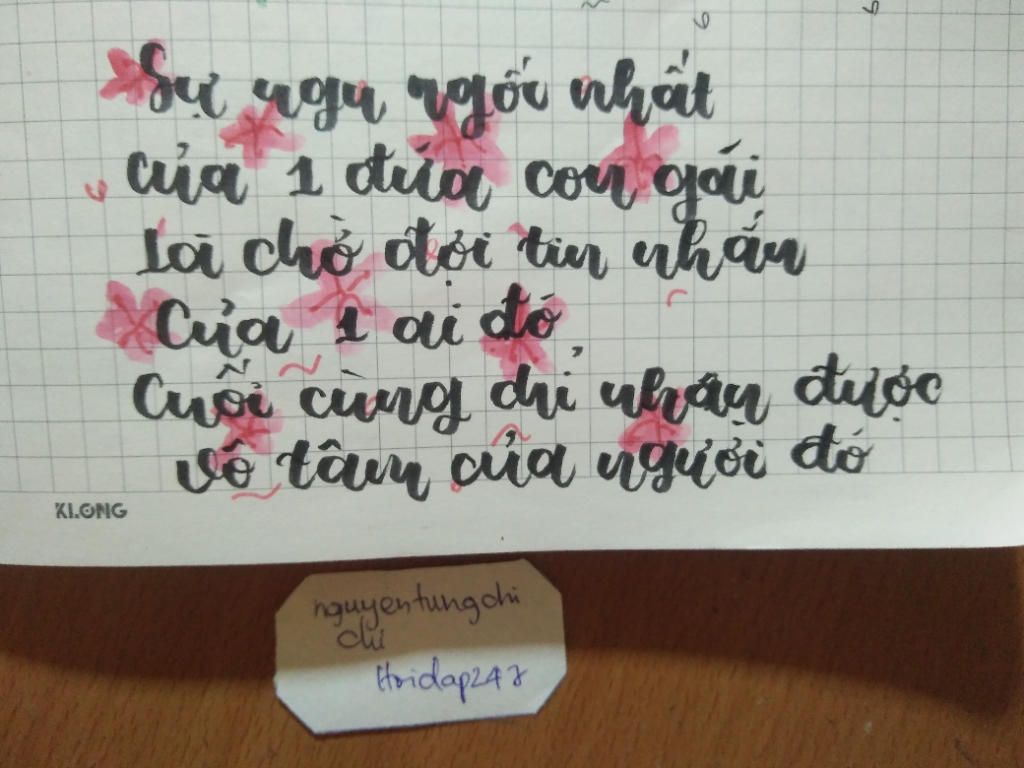 Sự ngu ngốc nhất
của 1 đứa con gái
Là chờ đợi tin nhắn
Của 1 ai đó
Cuối cùng chỉ nhận được
vô tâm của người đó
KLONG
nguyentungchi
chi
Hoidap247